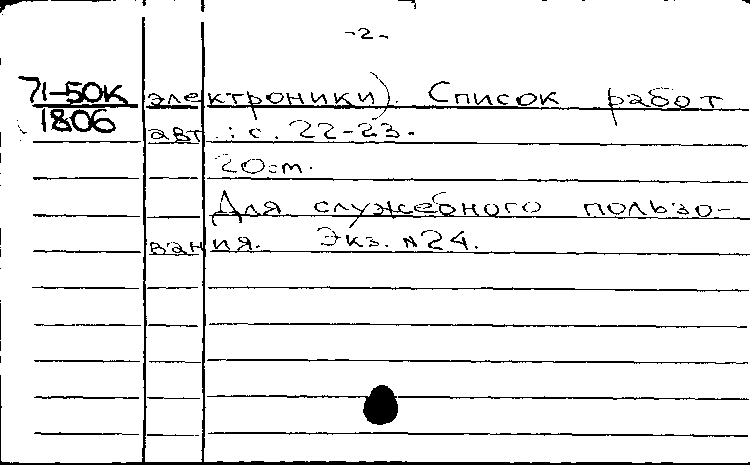 -2-
71-50к электроники). Список работ
1806 авт.: с. 22-23.
20см.
Для служебного пользо-
вания. Экз. №24.